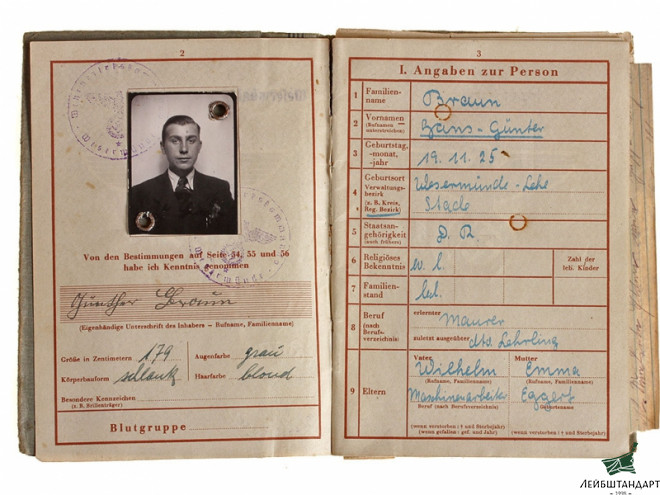 2
Von den Bestimmungen auf Seite 54, 55 und 56
habe ich Kenntnis genommen
Günther Braun
(Eigenhändige Unterschrift des Inhabers – Rufname, Familienname)
Größe in Zentimetern 179 Augenfarbe grau
Körperbauform schlank Haarfarbe blond
Besondere Kennzeichen
(z. B. Brillenträger)
Blutgruppe
3
I. Angaben zur Person
1 Familien-
name Braun
2 Vornamen
(Rufnamen
unterstreichen) Hans-Günter
3 Geburtstag,
-monat,
-jahr 19.11.25
4 Geburtsort
Verwaltungs-
bezirk
(z. B. Kreis,
Reg. Bezirk) Wesermünde-Lehe
Stade
5 Staatsan-
gehörigkeit
(auch frühere) D. R.
6 Religiöses
Bekenntnis Zahl der
leb. Kinder
7 Familien-
stand led.
8 Beruf
(nach
Berufs-
verzeichnis) erlernter Maurer
zuletzt ausgeübter Lehrling
9 Eltern
Vater Mutter
Wilhelm Emma
(Rufname, Familienname) (Rufname, Familienname)
Maschinenarbeiter Eggert
Beruf (nach Berufsverzeichnis) Geburtsname
(wenn verstorben: † und Sterbejahr)
(wenn gefallen: gef. und Jahr) (wenn verstorben: † und Sterbejahr)
ЛЕЙБШТАНДАРТ